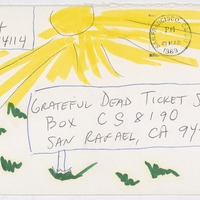 4114
GRATEFUL DEAD TICKET S
BOX CS 8190
SAN RAFAEL, CA 94
PM
1983